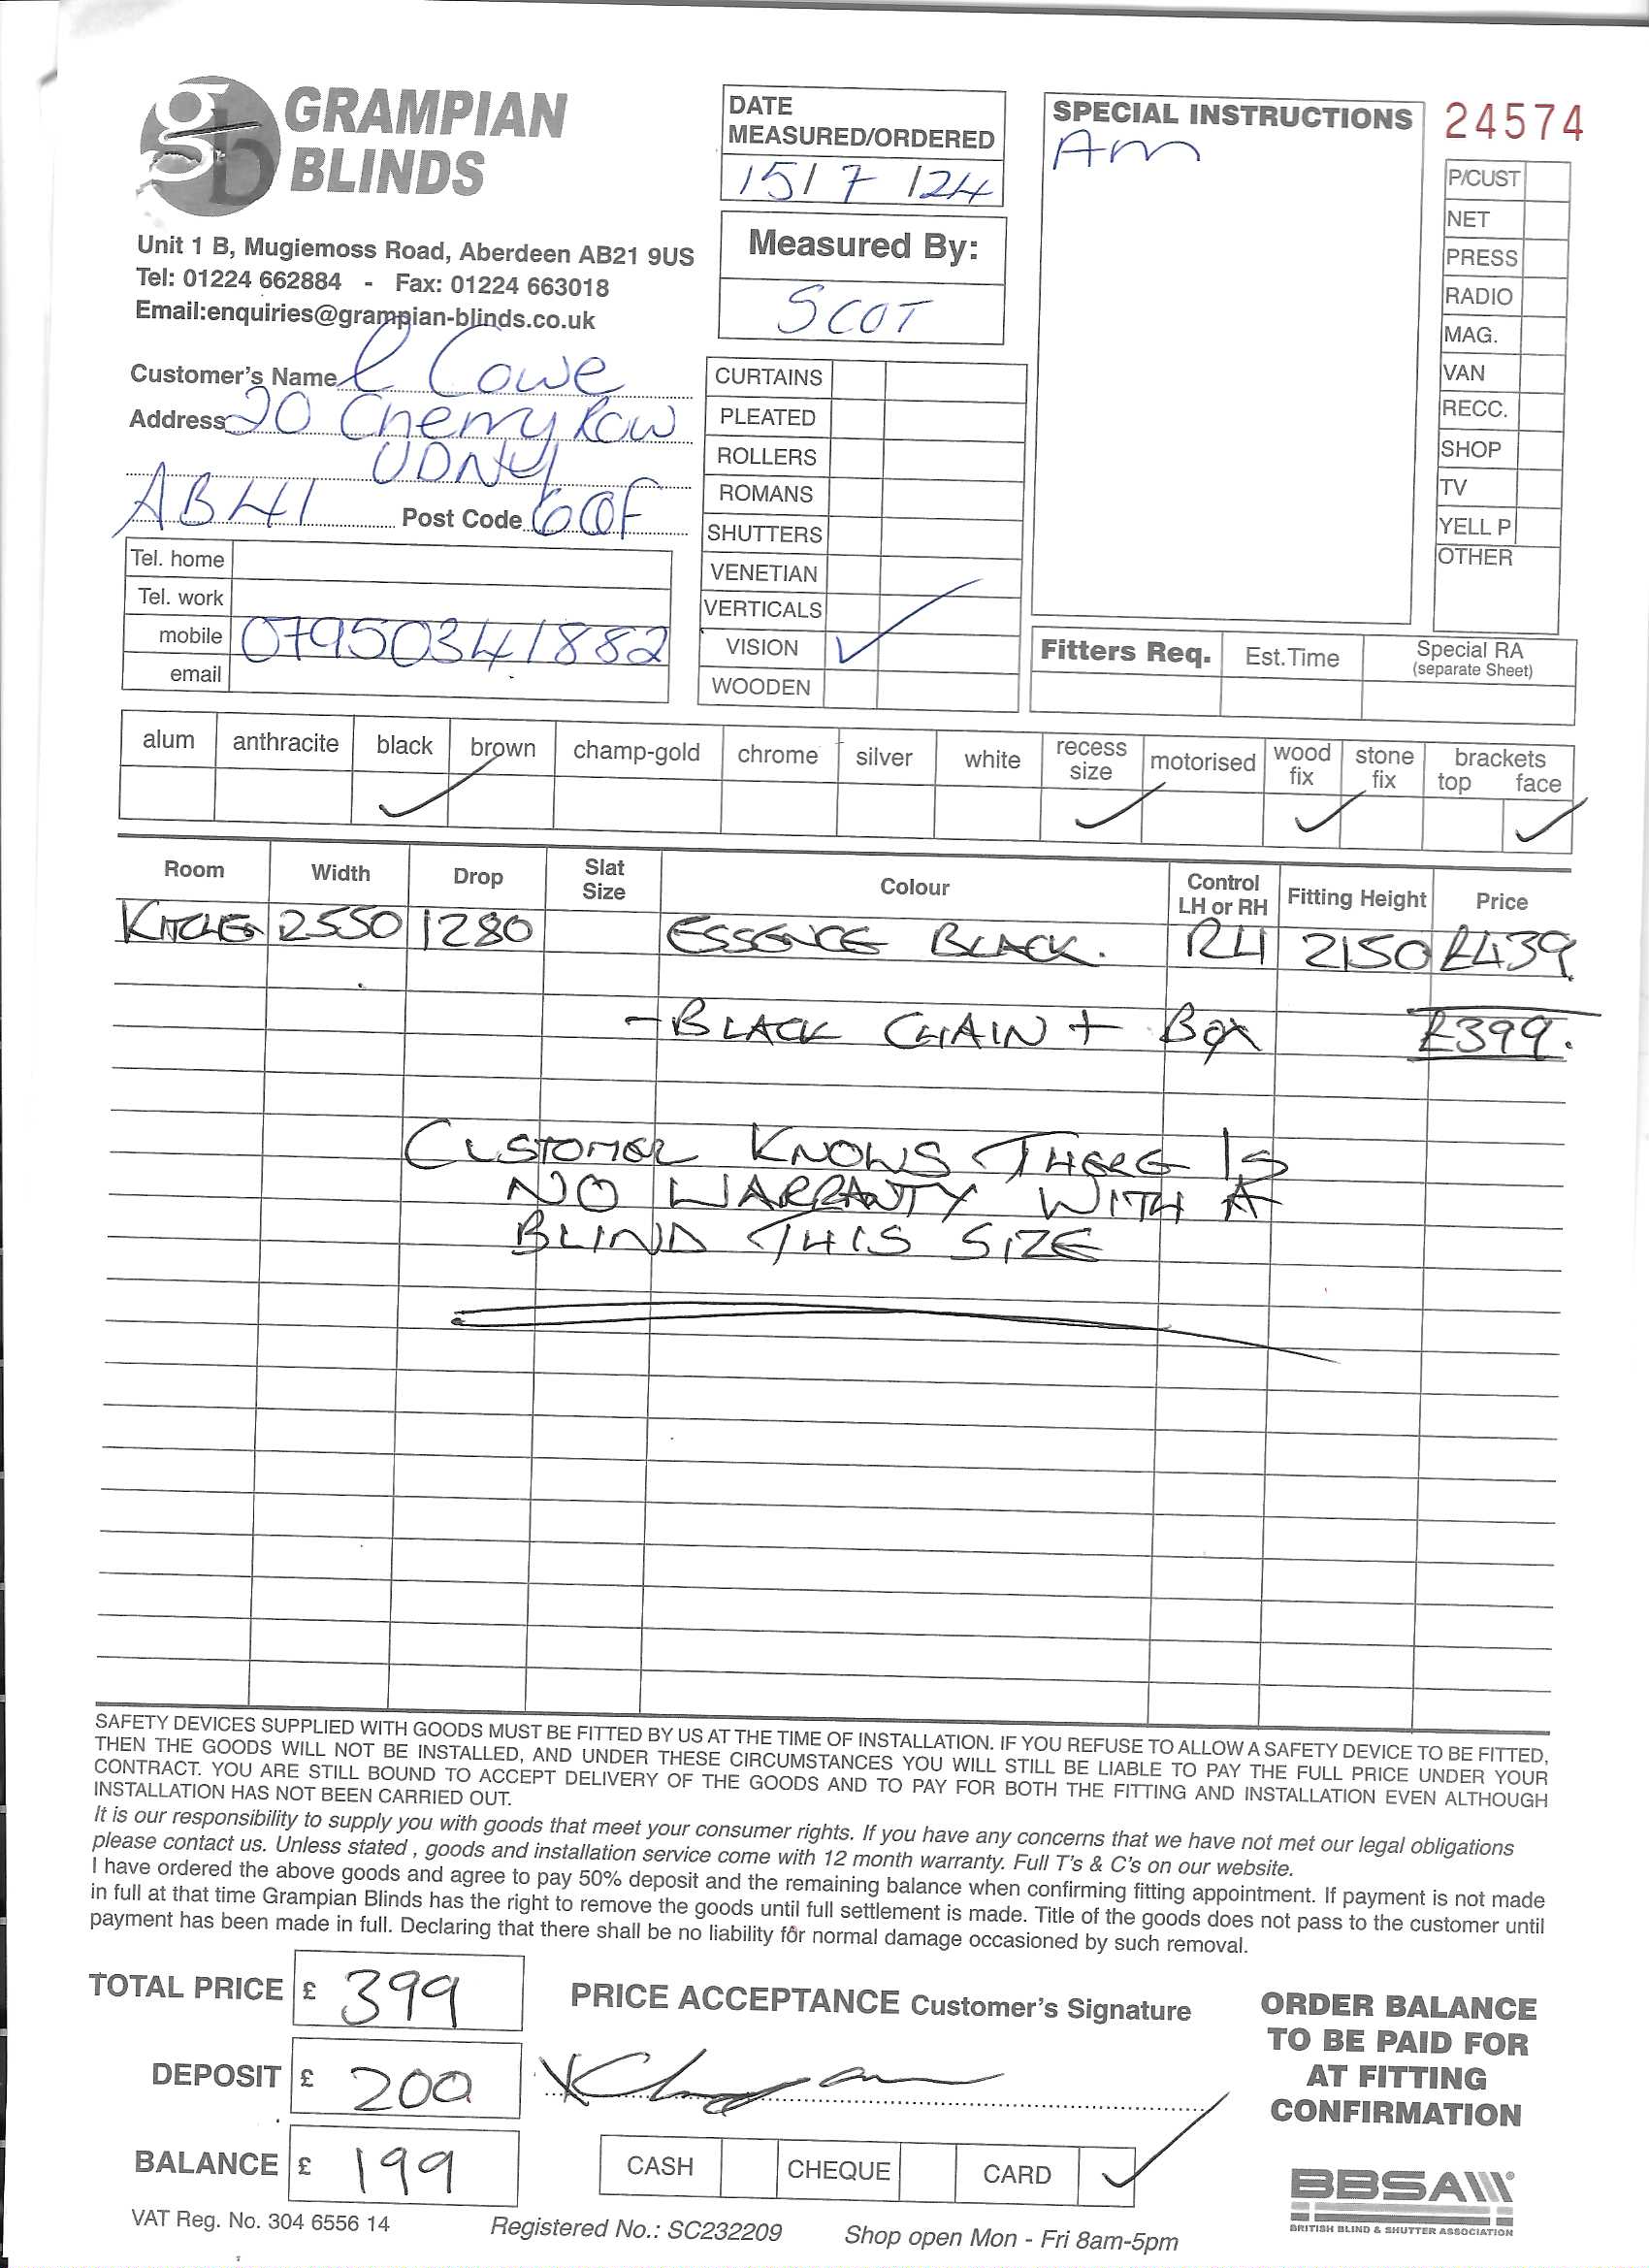 gb GRAMPIAN
BLINDS
Unit 1 B, Mugiemoss Road, Aberdeen AB21 9US
Tel: 01224 662884 - Fax: 01224 663018
Email:enquiries@grampian-blinds.co.uk
Customer's Name Cowe
Address 20 Cherry Row
UDNY
AB41 Post Code 6QF
Tel. home
Tel. work
mobile 07950341882
email
DATE
MEASURED/ORDERED
15/7/24
Measured By:
SCOT
CURTAINS
PLEATED
ROLLERS
ROMANS
SHUTTERS
VENETIAN
VERTICALS
VISION ✓
WOODEN
SPECIAL INSTRUCTIONS
Am
24574
P/CUST
NET
PRESS
RADIO
MAG.
VAN
RECC.
SHOP
TV
YELL P
OTHER
Fitters Req. Est.Time Special RA
(separate Sheet)
alum anthracite black brown champ-gold chrome silver white recess size motorised wood fix stone fix brackets top face
✓ ✓ ✓ ✓
Room Width Drop Slat Size Colour Control LH or RH Fitting Height Price
KITCHEN 2550 1280 ESSENCE BLACK. RH 2150 £439
- BLACK CHAIN + BOX £399.
CUSTOMER KNOWS THERE IS
NO WARRANTY WITH A
BLIND THIS SIZE
SAFETY DEVICES SUPPLIED WITH GOODS MUST BE FITTED BY US AT THE TIME OF INSTALLATION. IF YOU REFUSE TO ALLOW A SAFETY DEVICE TO BE FITTED,
THEN THE GOODS WILL NOT BE INSTALLED, AND UNDER THESE CIRCUMSTANCES YOU WILL STILL BE LIABLE TO PAY THE FULL PRICE UNDER YOUR
CONTRACT. YOU ARE STILL BOUND TO ACCEPT DELIVERY OF THE GOODS AND TO PAY FOR BOTH THE FITTING AND INSTALLATION EVEN ALTHOUGH
INSTALLATION HAS NOT BEEN CARRIED OUT.
It is our responsibility to supply you with goods that meet your consumer rights. If you have any concerns that we have not met our legal obligations
please contact us. Unless stated , goods and installation service come with 12 month warranty. Full T's & C's on our website.
I have ordered the above goods and agree to pay 50% deposit and the remaining balance when confirming fitting appointment. If payment is not made
in full at that time Grampian Blinds has the right to remove the goods until full settlement is made. Title of the goods does not pass to the customer until
payment has been made in full. Declaring that there shall be no liability for normal damage occasioned by such removal.
TOTAL PRICE £ 399
DEPOSIT £ 200
BALANCE £ 199
PRICE ACCEPTANCE Customer's Signature
CASH CHEQUE CARD ✓
ORDER BALANCE
TO BE PAID FOR
AT FITTING
CONFIRMATION
BBSA
BRITISH BLIND & SHUTTER ASSOCIATION
VAT Reg. No. 304 6556 14 Registered No.: SC232209 Shop open Mon - Fri 8am-5pm